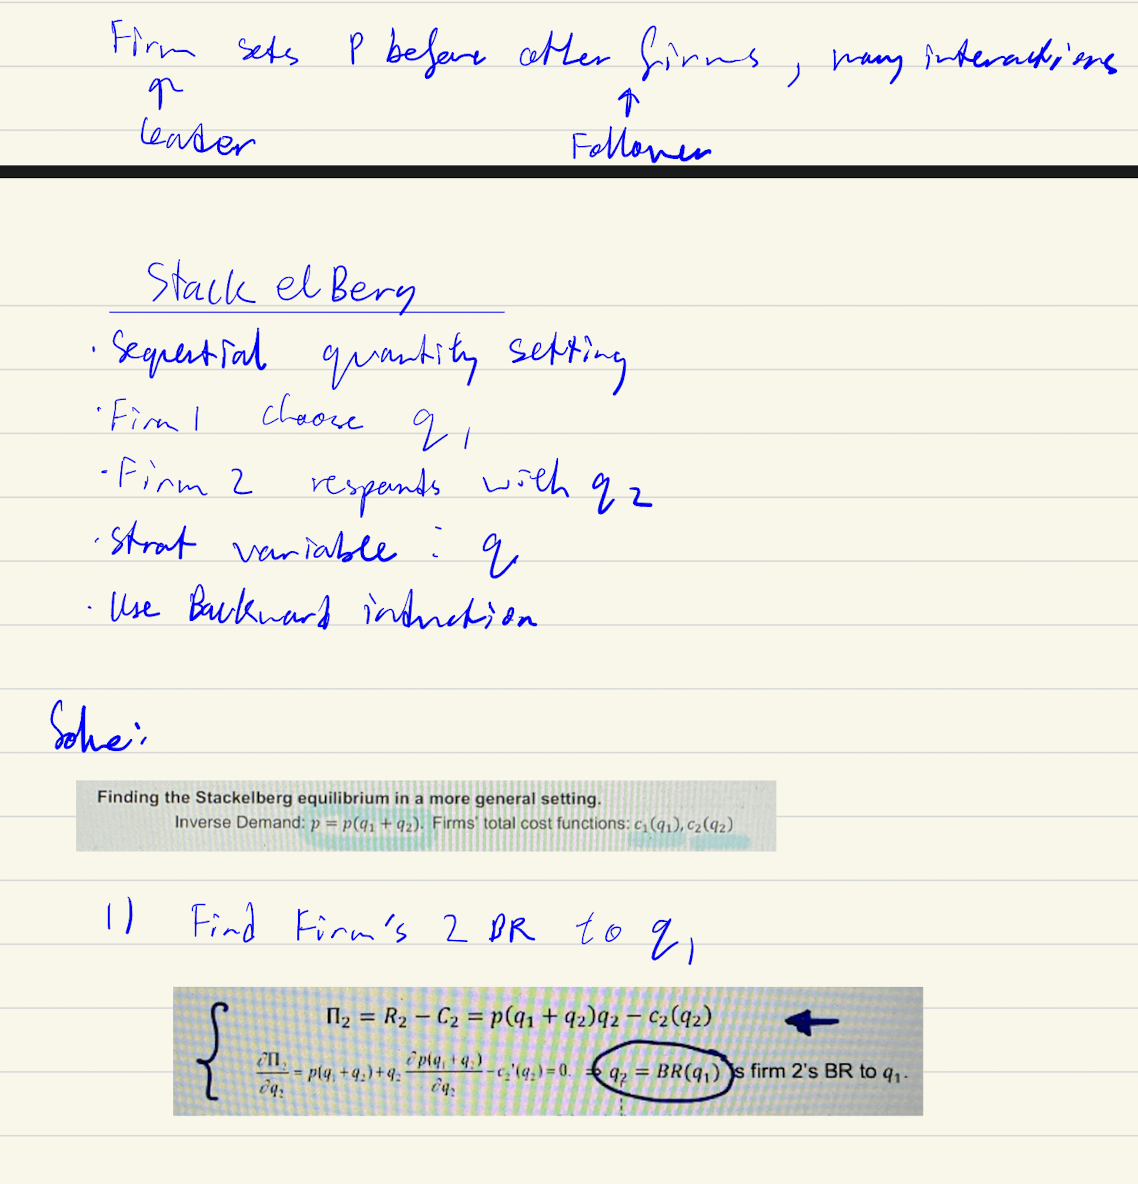 Firm sets P before other firms, many interactions
↑ ↑
Leader Follower
Stack el Berg
· Sequential quantity setting
· Firm 1 choose q₁
- Firm 2 responds with q₂
· Strat variable : q
· Use Backward induction
Solve:
Finding the Stackelberg equilibrium in a more general setting.
Inverse Demand: p = p(q₁ + q₂). Firms' total cost functions: c₁(q₁), c₂(q₂)
1) Find Firm's 2 BR to q₁
Π₂ = R₂ − C₂ = p(q₁ + q₂)q₂ − c₂(q₂) ←
∂Π₂/∂q₂ = p(q₁ + q₂) + q₂ ∂p(q₁ + q₂)/∂q₂ − c₂'(q₂) = 0. ⇒ q₂ = BR(q₁) is firm 2's BR to q₁.